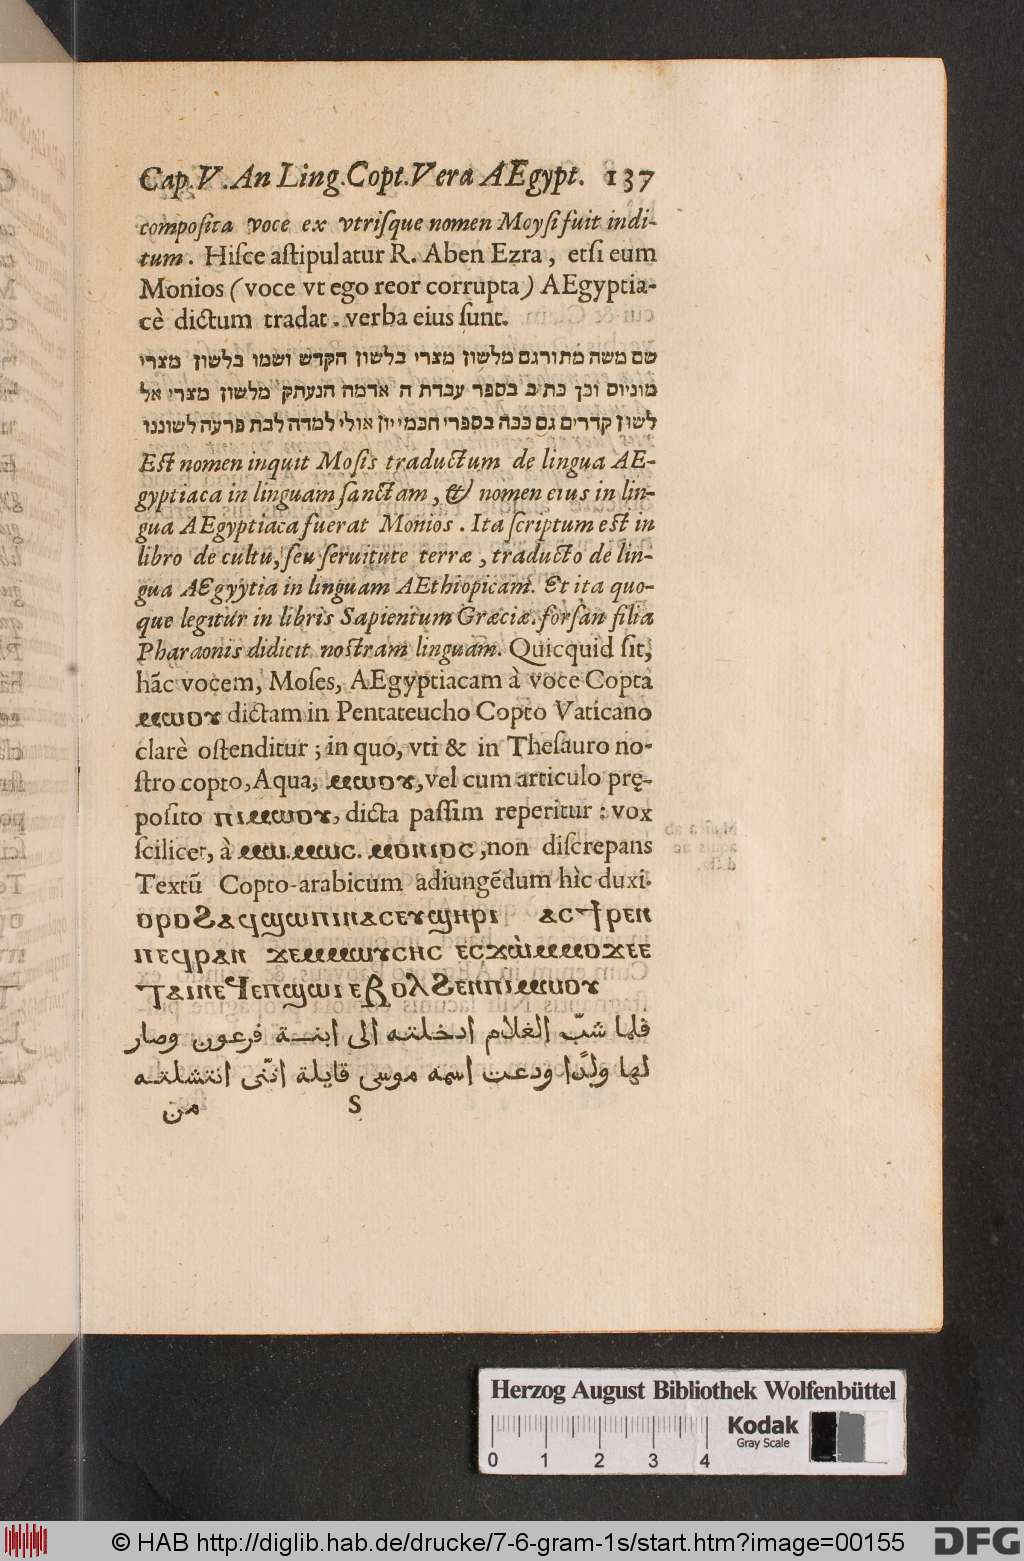 Cap. V. An Ling. Copt. Vera AEgypt. 137
composita voce ex vtrisque nomen Moysi fuit indi-
tum. Hisce astipulatur R. Aben Ezra, etsi eum
Monios (voce vt ego reor corrupta) AEgyptia-
cè dictum tradat. verba eius sunt.
שם משה מתורגם מלשון מצרי בלשון הקדש ושמו בלשון מצרי
מוניוס וכך כתיב בספר עבדת ה אדמה הנעתק מלשון מצרי אל
לשון קדרים גם ככה בספרי חכמי יון אולי למדה לבת פרעה לשוננו
Est nomen inquit Mosis traductum de lingua AE-
gyptiaca in linguam sanctam, & nomen eius in lin-
gua AEgyptiaca fuerat Monios. Ita scriptum est in
libro de cultu, seu seruitute terræ, traducto de lin-
gua AEgyytia in linguam AEthiopicam. Et ita quo-
que legitur in libris Sapientum Græciæ. forsan filia
Pharaonis didicit nostram linguam. Quicquid sit,
hãc vocem, Moses, AEgyptiacam à voce Copta
ⲙⲱⲟⲩ dictam in Pentateucho Copto Vaticano
clarè ostenditur; in quo, vti & in Thesauro no-
stro copto, Aqua, ⲙⲱⲟⲩ, vel cum articulo prę-
posito ⲡⲓⲙⲱⲟⲩ, dicta passim reperitur: vox
scilicet, à ⲙⲱ. ⲙⲱⲥ. ⲙⲟⲛⲓⲟⲥ, non discrepans
Textũ Copto-arabicum adiungẽdum hìc duxi.
ⲟⲣⲟϨⲁϥϣⲱⲡⲓⲛⲁⲥⲉⲩϣⲏⲣⲓ ⲁⲥϯⲣⲉⲛ
ⲡⲉϥⲣⲁⲛ ϫⲉⲙⲙⲱⲩⲥⲏⲥ ⲉⲥϫⲱⲙⲙⲟϫⲉⲉ
ϯⲁⲓⲛⲉϯⲉⲡϣⲱⲓ ⲉⲃⲟⲗϨⲉⲛⲡⲓⲙⲱⲟⲩ
فلما شبّ الغلام ادخلته الى ابنة فرعون وصار
لها ولدًا ودعت اسمه موسى قايلة انّنى انتشلته
S من
Herzog August Bibliothek Wolfenbüttel
Kodak
Gray Scale
0 1 2 3 4
© HAB http://diglib.hab.de/drucke/7-6-gram-1s/start.htm?image=00155
DFG